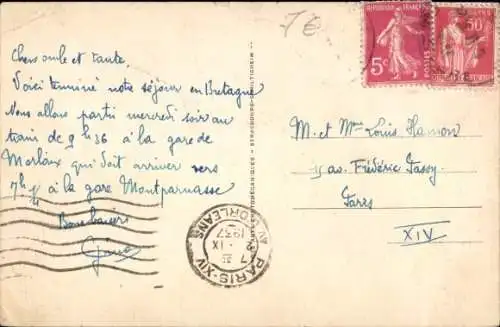 Chers oncle et tante,
Voici terminé notre séjour en Bretagne
Nous allons partir mercredi soir au
train de 9h36 à la gare de
Morlaix qui doit arriver vers
7h 1/4 à la gare Montparnasse
Bons baisers
M. et Mme Louis Hamon
15 av. Frédéric Passy
Paris
XIV
RÉPUBLIQUE FRANÇAISE
5c
POSTES
50c
PARIS-XIV
AV. D'ORLEANS
7
IX
1937